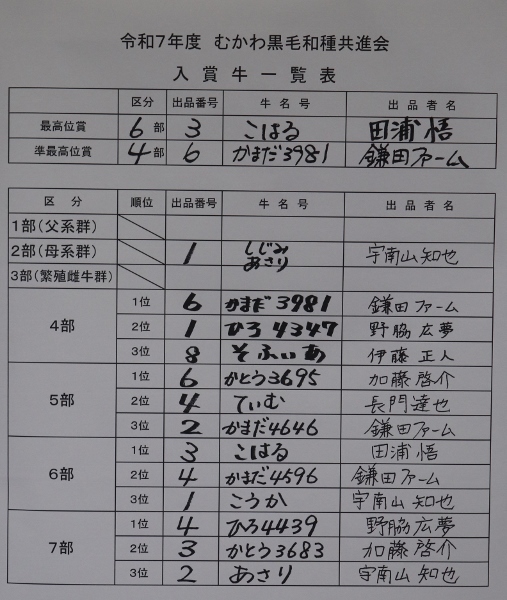 令和7年度 むかわ黒毛和種共進会
入賞牛一覧表
区分 出品番号 牛名号 出品者名
最高位賞 6部 3 こはる 田浦悟
準最高位賞 4部 6 かまだ3981 鎌田ファーム
区分 順位 出品番号 牛名号 出品者名
1部(父系群)
2部(母系群) 1 しじみ あさり 宇南山知也
3部(繁殖雌牛群)
4部 1位 6 かまだ3981 鎌田ファーム
2位 1 ひろ4347 野脇広夢
3位 8 そふぃあ 伊藤正人
5部 1位 6 かとう3695 加藤啓介
2位 4 てぃむ 長門達也
3位 2 かまだ4646 鎌田ファーム
6部 1位 3 こはる 田浦悟
2位 4 かまだ4596 鎌田ファーム
3位 1 こうか 宇南山知也
7部 1位 4 ひろ4439 野脇広夢
2位 3 かとう3683 加藤啓介
3位 2 あさり 宇南山知也